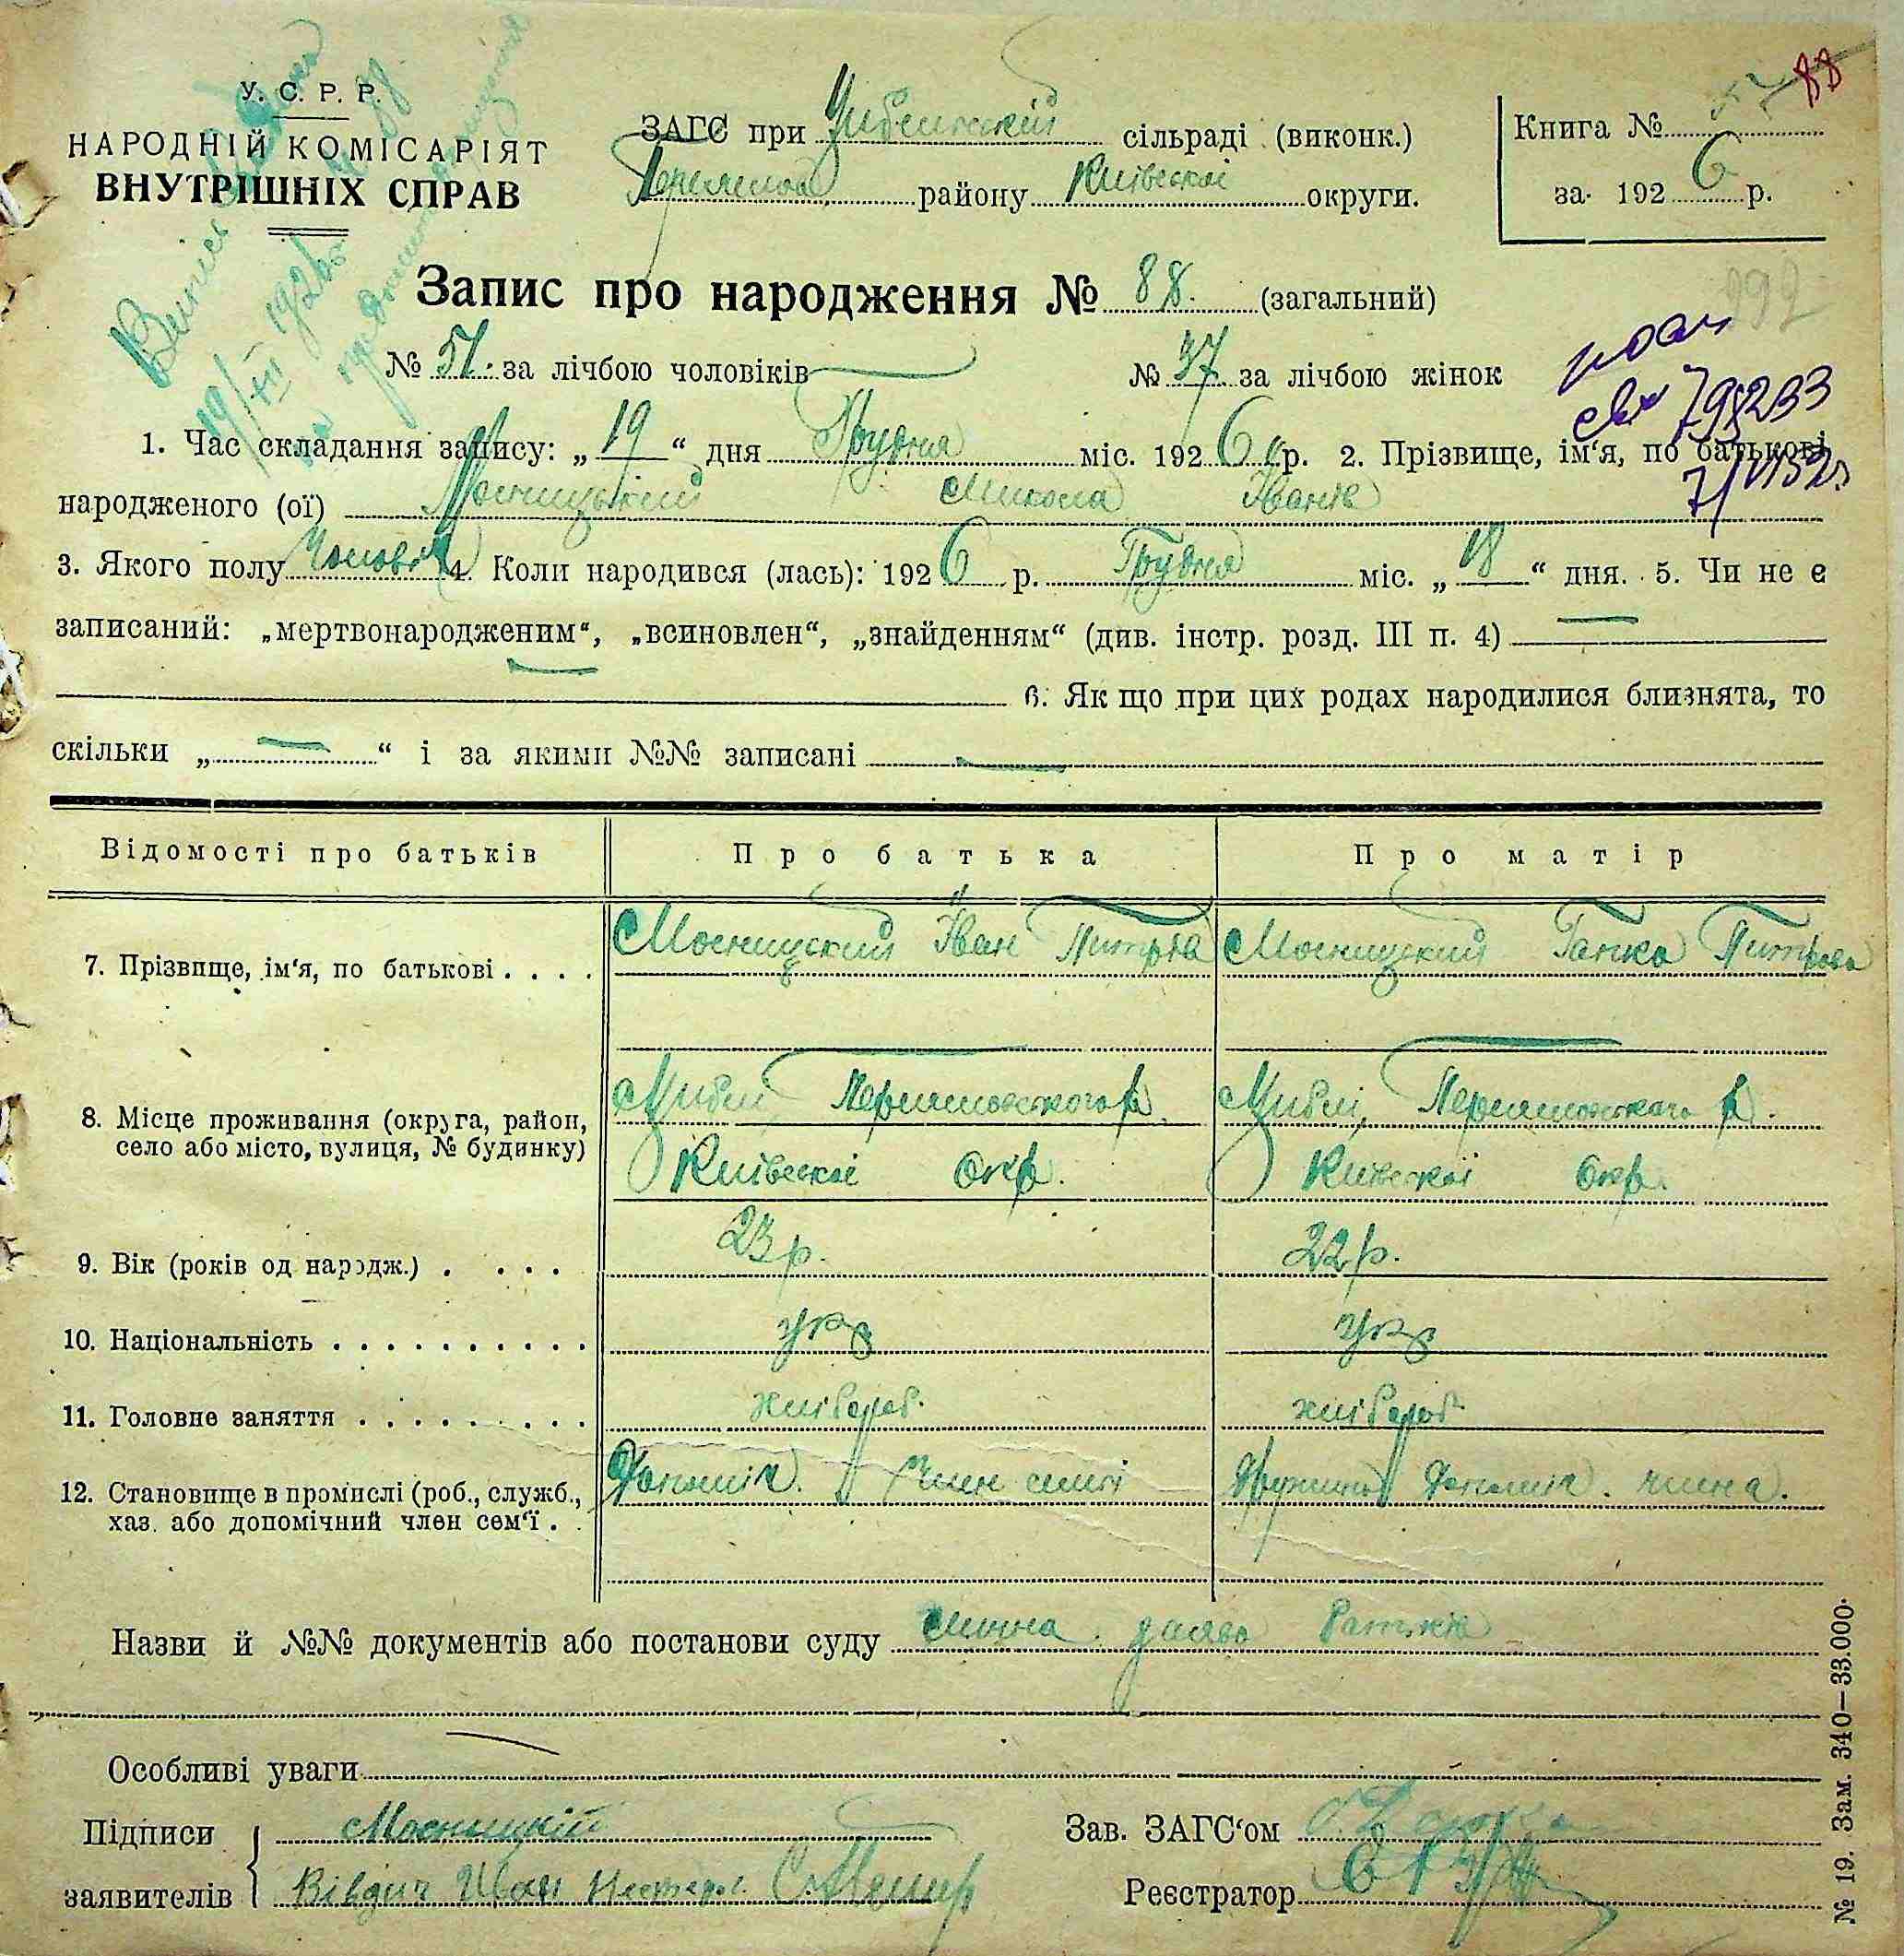 У. С. Р. Р.
НАРОДНІЙ КОМІСАРІЯТ
ВНУТРІШНІХ СПРАВ
ЗАГС при сільраді (виконк.)
району Київськоі округи.
Книга №
за 1926 р.
88
292
Запис про народження № 88. (загальний)
Випис
19/XII 1926
№ 51. за лічбою чоловіків № 37 за лічбою жінок
795233
1. Час складання запису: „19“ дня Грудня міс. 1926 р. 2. Прізвище, ім‘я, по батькові
народженого (ої) Мосницький Микола Іванів
3. Якого полу Чоловік 4. Коли народився (лась): 1926 р. Грудня міс. „18“ дня. 5. Чи не є
записаний: „мертвонародженим“, „всиновлен“, „знайденням“ (див. інстр. розд. III п. 4)
6. Як що при цих родах народилися близнята, то
скільки „ — “ і за якими №№ записані —
Відомості про батьків Про батька Про матір
7. Прізвище, ім‘я, по батькові . . . . Мосницский Іван Питрів Мосницский Ганка Питрова
8. Місце проживання (округа, район,
село або місто, вулиця, № будинку)
Циблі Переяловского р. Циблі, Переяловского р.
Київскоі Окр. Київскоі Окр.
9. Вік (років од народж.) . . . . 23 р. 22 р.
10. Національність . . . . . . . . . . укр укр
11. Головне заняття . . . . . . . . . хлібороб. хлібороб
12. Становище в промислі (роб., служб.,
хаз. або допомічний член сем‘ї . .
Допоміч. Член семі Дружина Допоміч. члена.
Назви й №№ документів або постанови суду заява
Особливі уваги
Підписи
заявителів
Мосницкій
Іван
Зав. ЗАГС‘ом
Реєстратор
№ 19. Зам. 340—33.000.